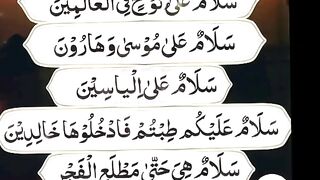 سَلَامٌ عَلَىٰ نُوحٍ فِي الْعَالَمِينَ
سَلَامٌ عَلَىٰ مُوْسٰى وَهَارُوْنَ
سَلَامٌ عَلَىٰ اِلْيَاسِيْنَ
سَلَامٌ عَلَيْكُم طِبْتُمْ فَادْخُلُوْهَا خَالِدِيْنَ
سَلَامٌ هِيَ حَتّٰى مَطْلَعِ الْفَجْرِ